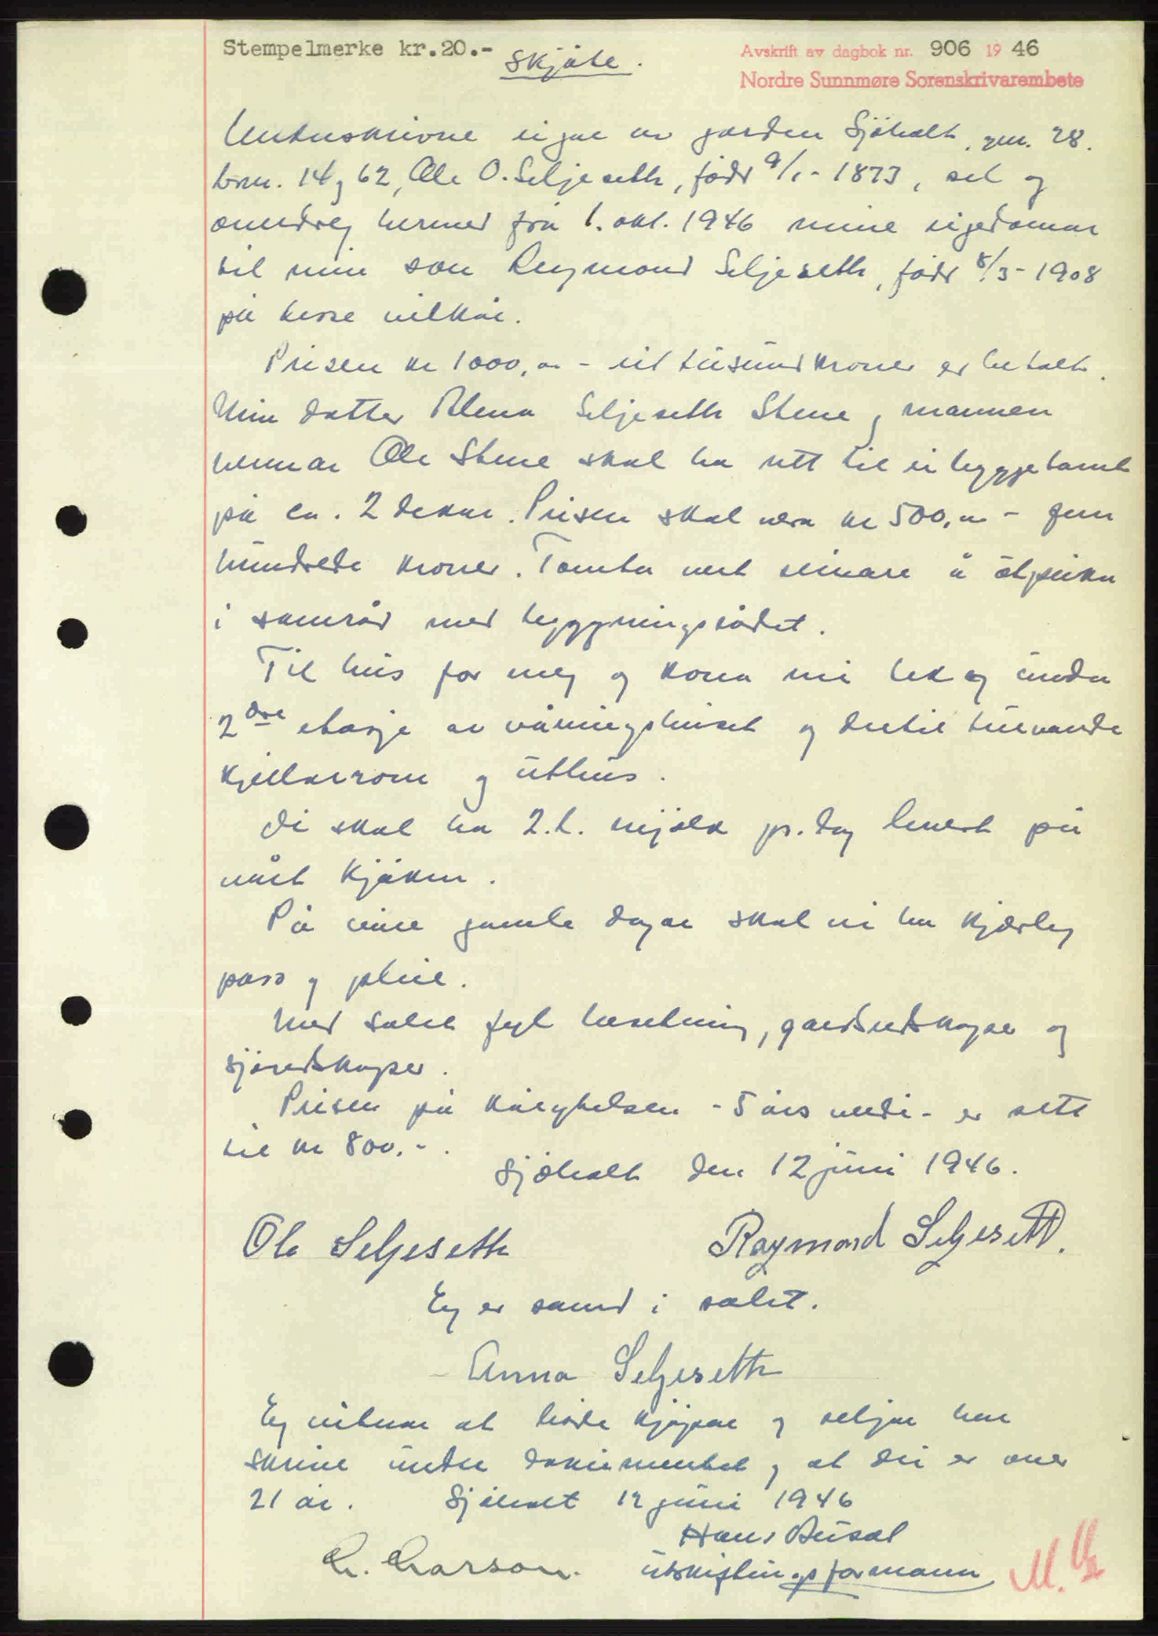 Stempelmerke kr.20.-
Skjøte.
Avskrift av dagbok nr. 906 19 46
Nordre Sunnmøre Sorenskrivarembete
Underskrivne eigar av garden Sjøholt, gnr. 28.
bnr. 14 og 62, Ole O. Seljeseth, født 9/1-1873, sel og
overdreg hermed frå 1. okt. 1946 mine eigedomar
til min son Raymond Seljeseth, født 8/3-1908
på desse vilkår.
Prisen kr 1000,00 - eit tusund kroner er betalt.
Min dotter Seljeseth Stene og mannen
hennar Ole Stene skal ha rett til ei byggjetomt
på ca. 2 dekar. Prisen skal vera kr 500,00 - fem
hundrede kroner. Tomta vert seinare å utpeika
i samråd med bygningsrådet.
Til hus for meg og kona mi tek eg unda
2dre etasje av våningshuset og dertil turvande
kjellarrom og uthus.
Vi skal ha 2.l. mjølk pr. dag levert på
vårt kjøken.
På våre gamle dagar skal vi ha kjærleg
pass og pleie.
Med salet fyl besetning, gardsredskaper og
sjøredskaper.
Prisen på kårytelsen - 5 års verdi - er sett
til kr 800.-.
Sjøholt den 12 juni 1946.
Ole Seljeseth
Raymond Seljeseth.
Eg er samd i salet.
Anna Seljeseth
Eg vitnar at både kjøpar og seljar har
skrive under dokumentet og at dei er over
21 år. Sjøholt 12 juni 1946
Hans Busal
L. Larson. utskiftingsformann